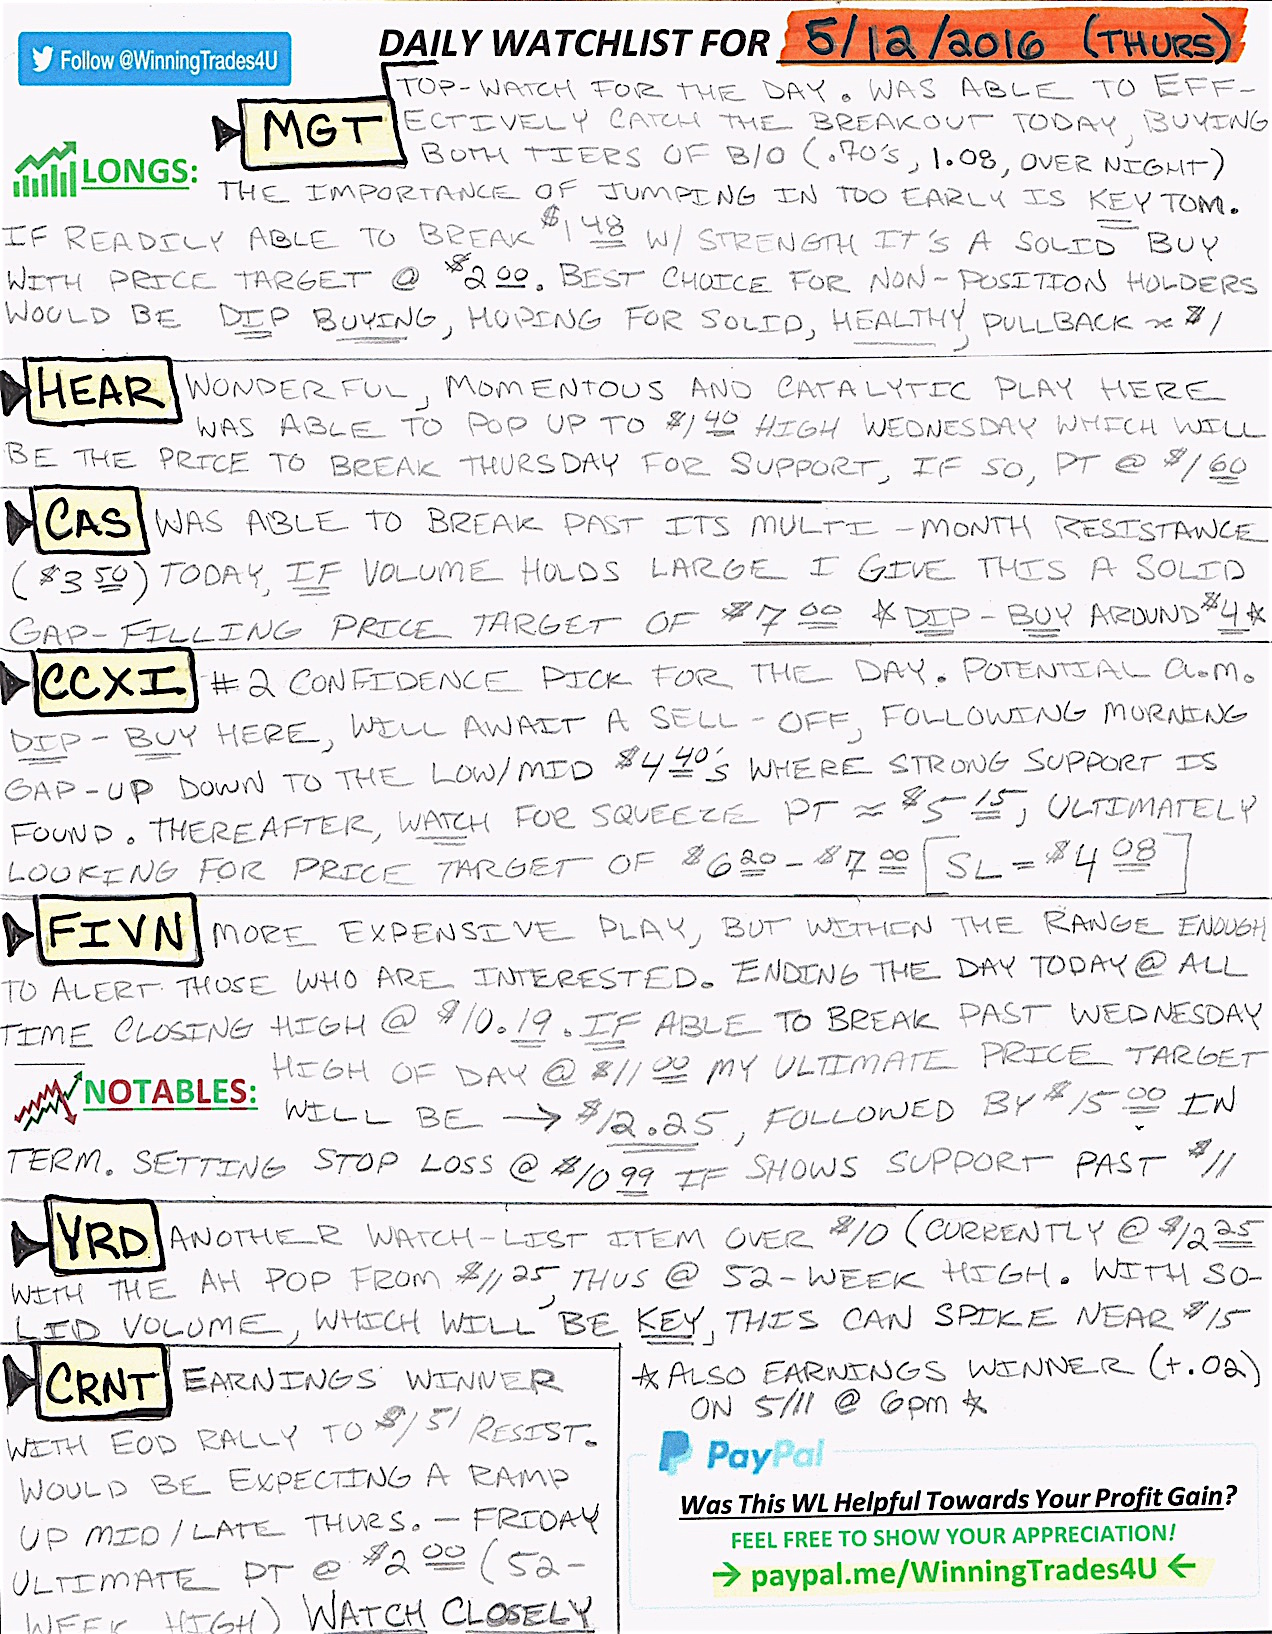 Follow @WinningTrades4U
DAILY WATCHLIST FOR 5/12/2016 (THURS)
LONGS:
MGT TOP-WATCH FOR THE DAY. WAS ABLE TO EFF-
ECTIVELY CATCH THE BREAKOUT TODAY, BUYING
BOTH TIERS OF B/O (.70's, 1.08, OVER NIGHT)
THE IMPORTANCE OF JUMPING IN TOO EARLY IS KEY TOM.
IF READILY ABLE TO BREAK $1 48 W/ STRENGTH IT'S A SOLID BUY
WITH PRICE TARGET @ $2 00. BEST CHOICE FOR NON-POSITION HOLDERS
WOULD BE DIP BUYING, HOPING FOR SOLID, HEALTHY PULLBACK ≈ $1
HEAR WONDERFUL, MOMENTOUS AND CATALYTIC PLAY HERE
WAS ABLE TO POP UP TO $1 40 HIGH WEDNESDAY WHICH WILL
BE THE PRICE TO BREAK THURSDAY FOR SUPPORT, IF SO, PT @ $1 60
CAS WAS ABLE TO BREAK PAST ITS MULTI-MONTH RESISTANCE
($3 50) TODAY, IF VOLUME HOLDS LARGE I GIVE THIS A SOLID
GAP-FILLING PRICE TARGET OF $7 00 *DIP-BUY AROUND $4*
CCXI #2 CONFIDENCE PICK FOR THE DAY. POTENTIAL a.m.
DIP-BUY HERE, WILL AWAIT A SELL-OFF, FOLLOWING MORNING
GAP-UP DOWN TO THE LOW/MID $4 40's WHERE STRONG SUPPORT IS
FOUND. THEREAFTER, WATCH FOR SQUEEZE PT ≈ $5 15, ULTIMATELY
LOOKING FOR PRICE TARGET OF $6 20 - $7 00 [SL = $4 08]
FIVN MORE EXPENSIVE PLAY, BUT WITHIN THE RANGE ENOUGH
TO ALERT THOSE WHO ARE INTERESTED. ENDING THE DAY TODAY @ ALL
TIME CLOSING HIGH @ $10.19. IF ABLE TO BREAK PAST WEDNESDAY
HIGH OF DAY @ $11 00 MY ULTIMATE PRICE TARGET
NOTABLES:
WILL BE → $12.25, FOLLOWED BY $15 00 IN
TERM. SETTING STOP LOSS @ $10 99 IF SHOWS SUPPORT PAST $11
YRD ANOTHER WATCH-LIST ITEM OVER $10 (CURRENTLY @ $12 25
WITH THE AH POP FROM $11 25, THUS @ 52-WEEK HIGH. WITH SO-
LID VOLUME, WHICH WILL BE KEY, THIS CAN SPIKE NEAR $15
*ALSO EARNINGS WINNER (+.02)
ON 5/11 @ 6pm *
CRNT EARNINGS WINNER
WITH EOD RALLY TO $1 51 RESIST.
WOULD BE EXPECTING A RAMP
UP MID/LATE THURS. - FRIDAY
ULTIMATE PT @ $2 00 (52-
WEEK HIGH) WATCH CLOSELY
PayPal
Was This WL Helpful Towards Your Profit Gain?
FEEL FREE TO SHOW YOUR APPRECIATION!
→ paypal.me/WinningTrades4U ←